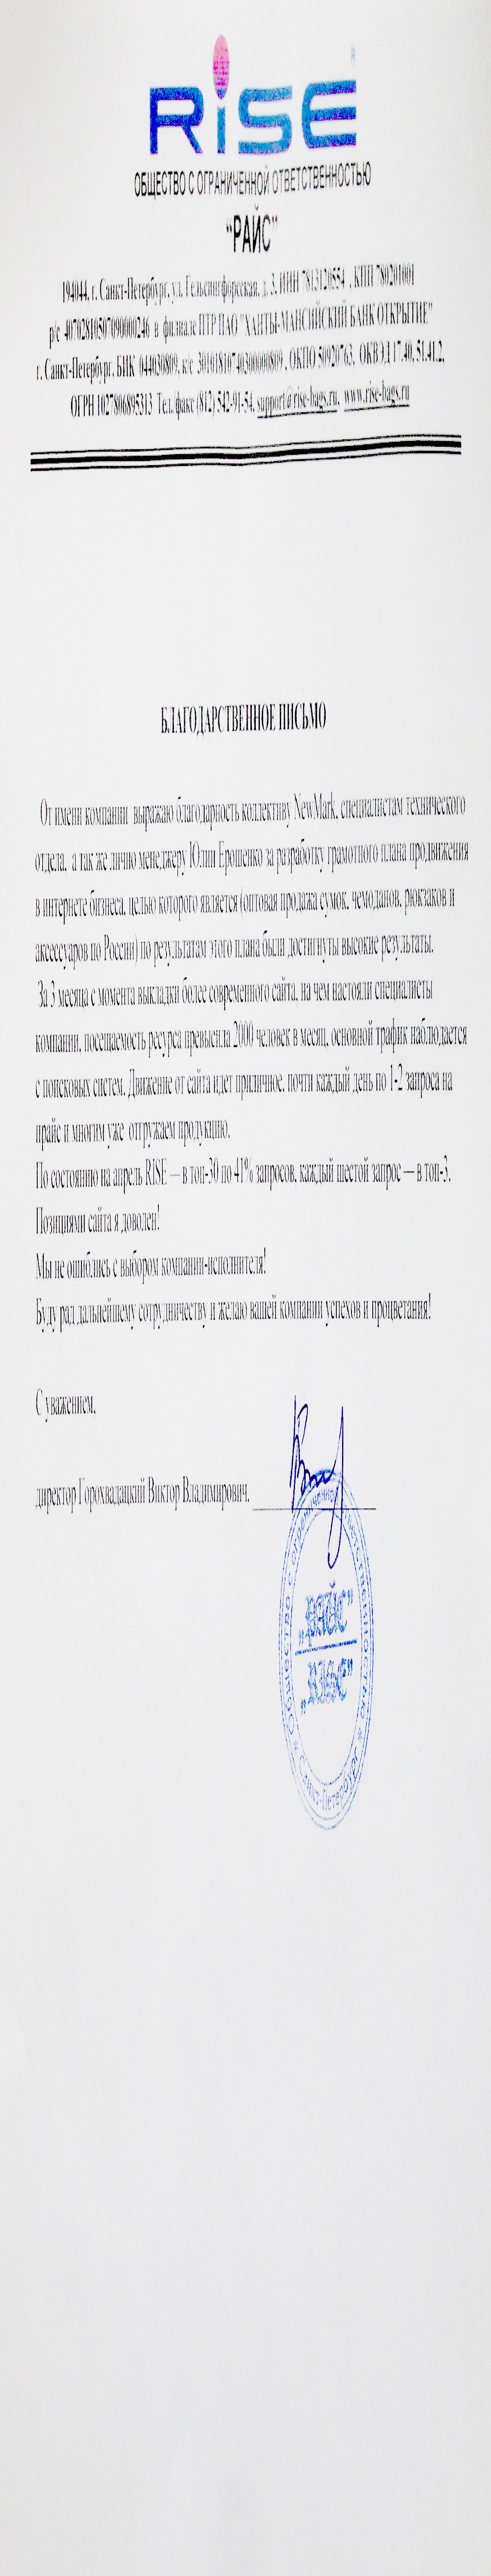 RiSE
ОБЩЕСТВО С ОГРАНИЧЕННОЙ ОТВЕТСТВЕННОСТЬЮ
“РАЙС”
194044, г. Санкт-Петербург, ул. Гельсингфорсская, д. 3, ИНН 7813120554 , КПП 780201001
р/с в филиале ПТР ПАО "ХАНТЫ-МАНСИЙСКИЙ БАНК ОТКРЫТИЕ"
г. Санкт-Петербург, БИК 044030809, к/с 30101810740300000809, ОКПО 50920763, ОКВЭД 17.40, 51.41.2,
ОГРН 1027806895313 Тел./факс (812) 542-91-54, support@rise-bags.ru, www.rise-bags.ru
БЛАГОДАРСТВЕННОЕ ПИСЬМО
От имени компании выражаю благодарность коллективу NewMark, специалистам технического
отдела, а так же лично менеджеру Юлии Ерошенко за разработку грамотного плана продвижения
в интернете бизнеса, целью которого является (оптовая продажа сумок, чемоданов, рюкзаков и
аксессуаров по России) по результатам этого плана были достигнуты высокие результаты.
За 3 месяца с момента выкладки более современного сайта, на чем настояли специалисты
компании, посещаемость ресурса превысила 2000 человек в месяц, основной трафик наблюдается
с поисковых систем. Движение от сайта идет приличное, почти каждый день по 1-2 запроса на
прайс и многим уже отгружаем продукцию.
По состоянию на апрель RISE — в топ-30 по 41% запросов, каждый шестой запрос — в топ-3.
Позициями сайта я доволен!
Мы не ошиблись с выбором компании-исполнителя!
Буду рад дальнейшему сотрудничеству и желаю вашей компании успехов и процветания!
С уважением,
директор Горохвадацкий Виктор Владимирович.
Общество с ограниченной ответственностью * Санкт-Петербург *
„РАЙС”
„RISE”